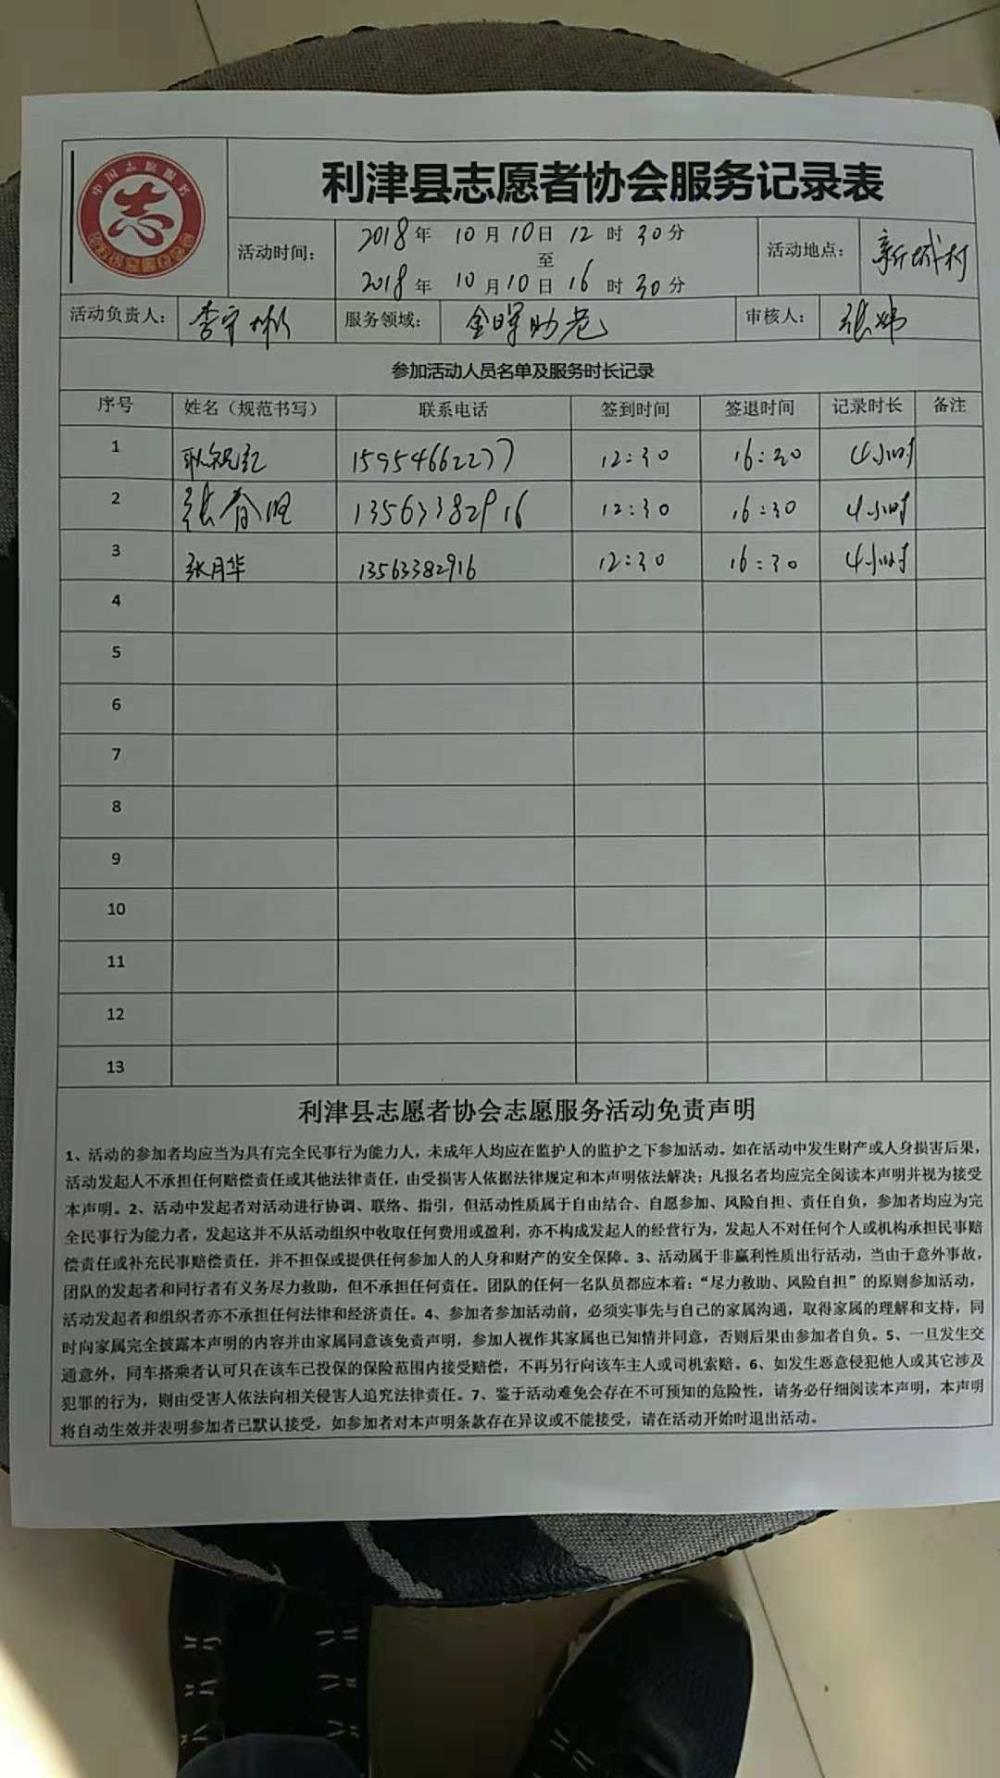 中国志愿服务
志
利津县志愿者协会服务记录表
活动时间：
2018年 10月10日 12时30分
至
2018年 10月10日 16时30分
活动地点：
新城村
活动负责人：
李守彬
服务领域：
金晖助老
审核人：
张炜
参加活动人员名单及服务时长记录
序号 姓名（规范书写） 联系电话 签到时间 签退时间 记录时长 备注
1 耿祝红 15954662277 12:30 16:30 4小时
2 张春旺 13563382916 12:30 16:30 4小时
3 张月华 13563382916 12:30 16:30 4小时
4
5
6
7
8
9
10
11
12
13
利津县志愿者协会志愿服务活动免责声明
1、活动的参加者均应当为具有完全民事行为能力人，未成年人均应在监护人的监护之下参加活动。如在活动中发生财产或人身损害后果，
活动发起人不承担任何赔偿责任或其他法律责任，由受损害人依据法律规定和本声明依法解决；凡报名者均应完全阅读本声明并视为接受
本声明。2、活动中发起者对活动进行协调、联络、指引，但活动性质属于自由结合、自愿参加、风险自担、责任自负，参加者均应为完
全民事行为能力者，发起这并不从活动组织中收取任何费用或盈利，亦不构成发起人的经营行为，发起人不对任何个人或机构承担民事赔
偿责任或补充民事赔偿责任，并不担保或提供任何参加人的人身和财产的安全保障。3、活动属于非赢利性质出行活动，当由于意外事故，
团队的发起者和同行者有义务尽力救助，但不承担任何责任。团队的任何一名队员都应本着：“尽力救助、风险自担”的原则参加活动，
活动发起者和组织者亦不承担任何法律和经济责任。4、参加者参加活动前，必须实事先与自己的家属沟通，取得家属的理解和支持，同
时向家属完全披露本声明的内容并由家属同意该免责声明，参加人视作其家属也已知情并同意，否则后果由参加者自负。5、一旦发生交
通意外，同车搭乘者认可只在该车已投保的保险范围内接受赔偿，不再另行向该车主人或司机索赔。6、如发生恶意侵犯他人或其它涉及
犯罪的行为，则由受害人依法向相关侵害人追究法律责任。7、鉴于活动难免会存在不可预知的危险性，请务必仔细阅读本声明，本声明
将自动生效并表明参加者已默认接受，如参加者对本声明条款存在异议或不能接受，请在活动开始时退出活动。